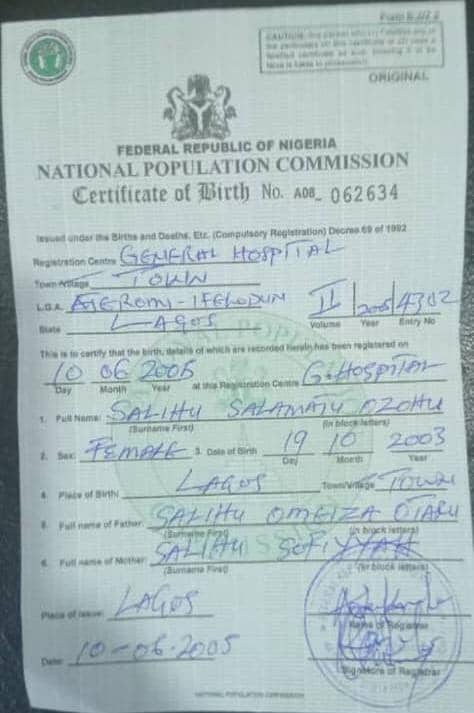 Form B.
CAUTION:
ORIGINAL
FEDERAL REPUBLIC OF NIGERIA
NATIONAL POPULATION COMMISSION
Certificate of Birth No. A08_ 062634
Issued under the Births and Deaths, Etc. (Compulsory Registration) Decree 69 of 1992
Registration Centre GENERAL HOSPITAL
Town/Village TOWN
L.G.A. AJEROMI-IFELODUN II 2005 4302
State LAGOS Volume Year Entry No
This is to certify that the birth, details of which are recorded herein has been registered on
10 06 2005 at this Registration Centre G. HOSPITAL
Day Month Year
1. Full Name: SALIHU SALAMATU OZOHU
(Surname First) (in block letters)
2. Sex: FEMALE 3. Date of Birth 19 10 2003
Day Month Year
4. Place of Birth: LAGOS Town/Village TOWN
5. Full name of Father: SALIHU OMEIZA OTARU
(Surname First) (in block letters)
6. Full name of Mother: SALIHU SOFIYYAH
(Surname First) (in block letters)
Place of issue: LAGOS
Name of Registrar
Date: 10-06-2005
Signature of Registrar
NATIONAL POPULATION COMMISSION